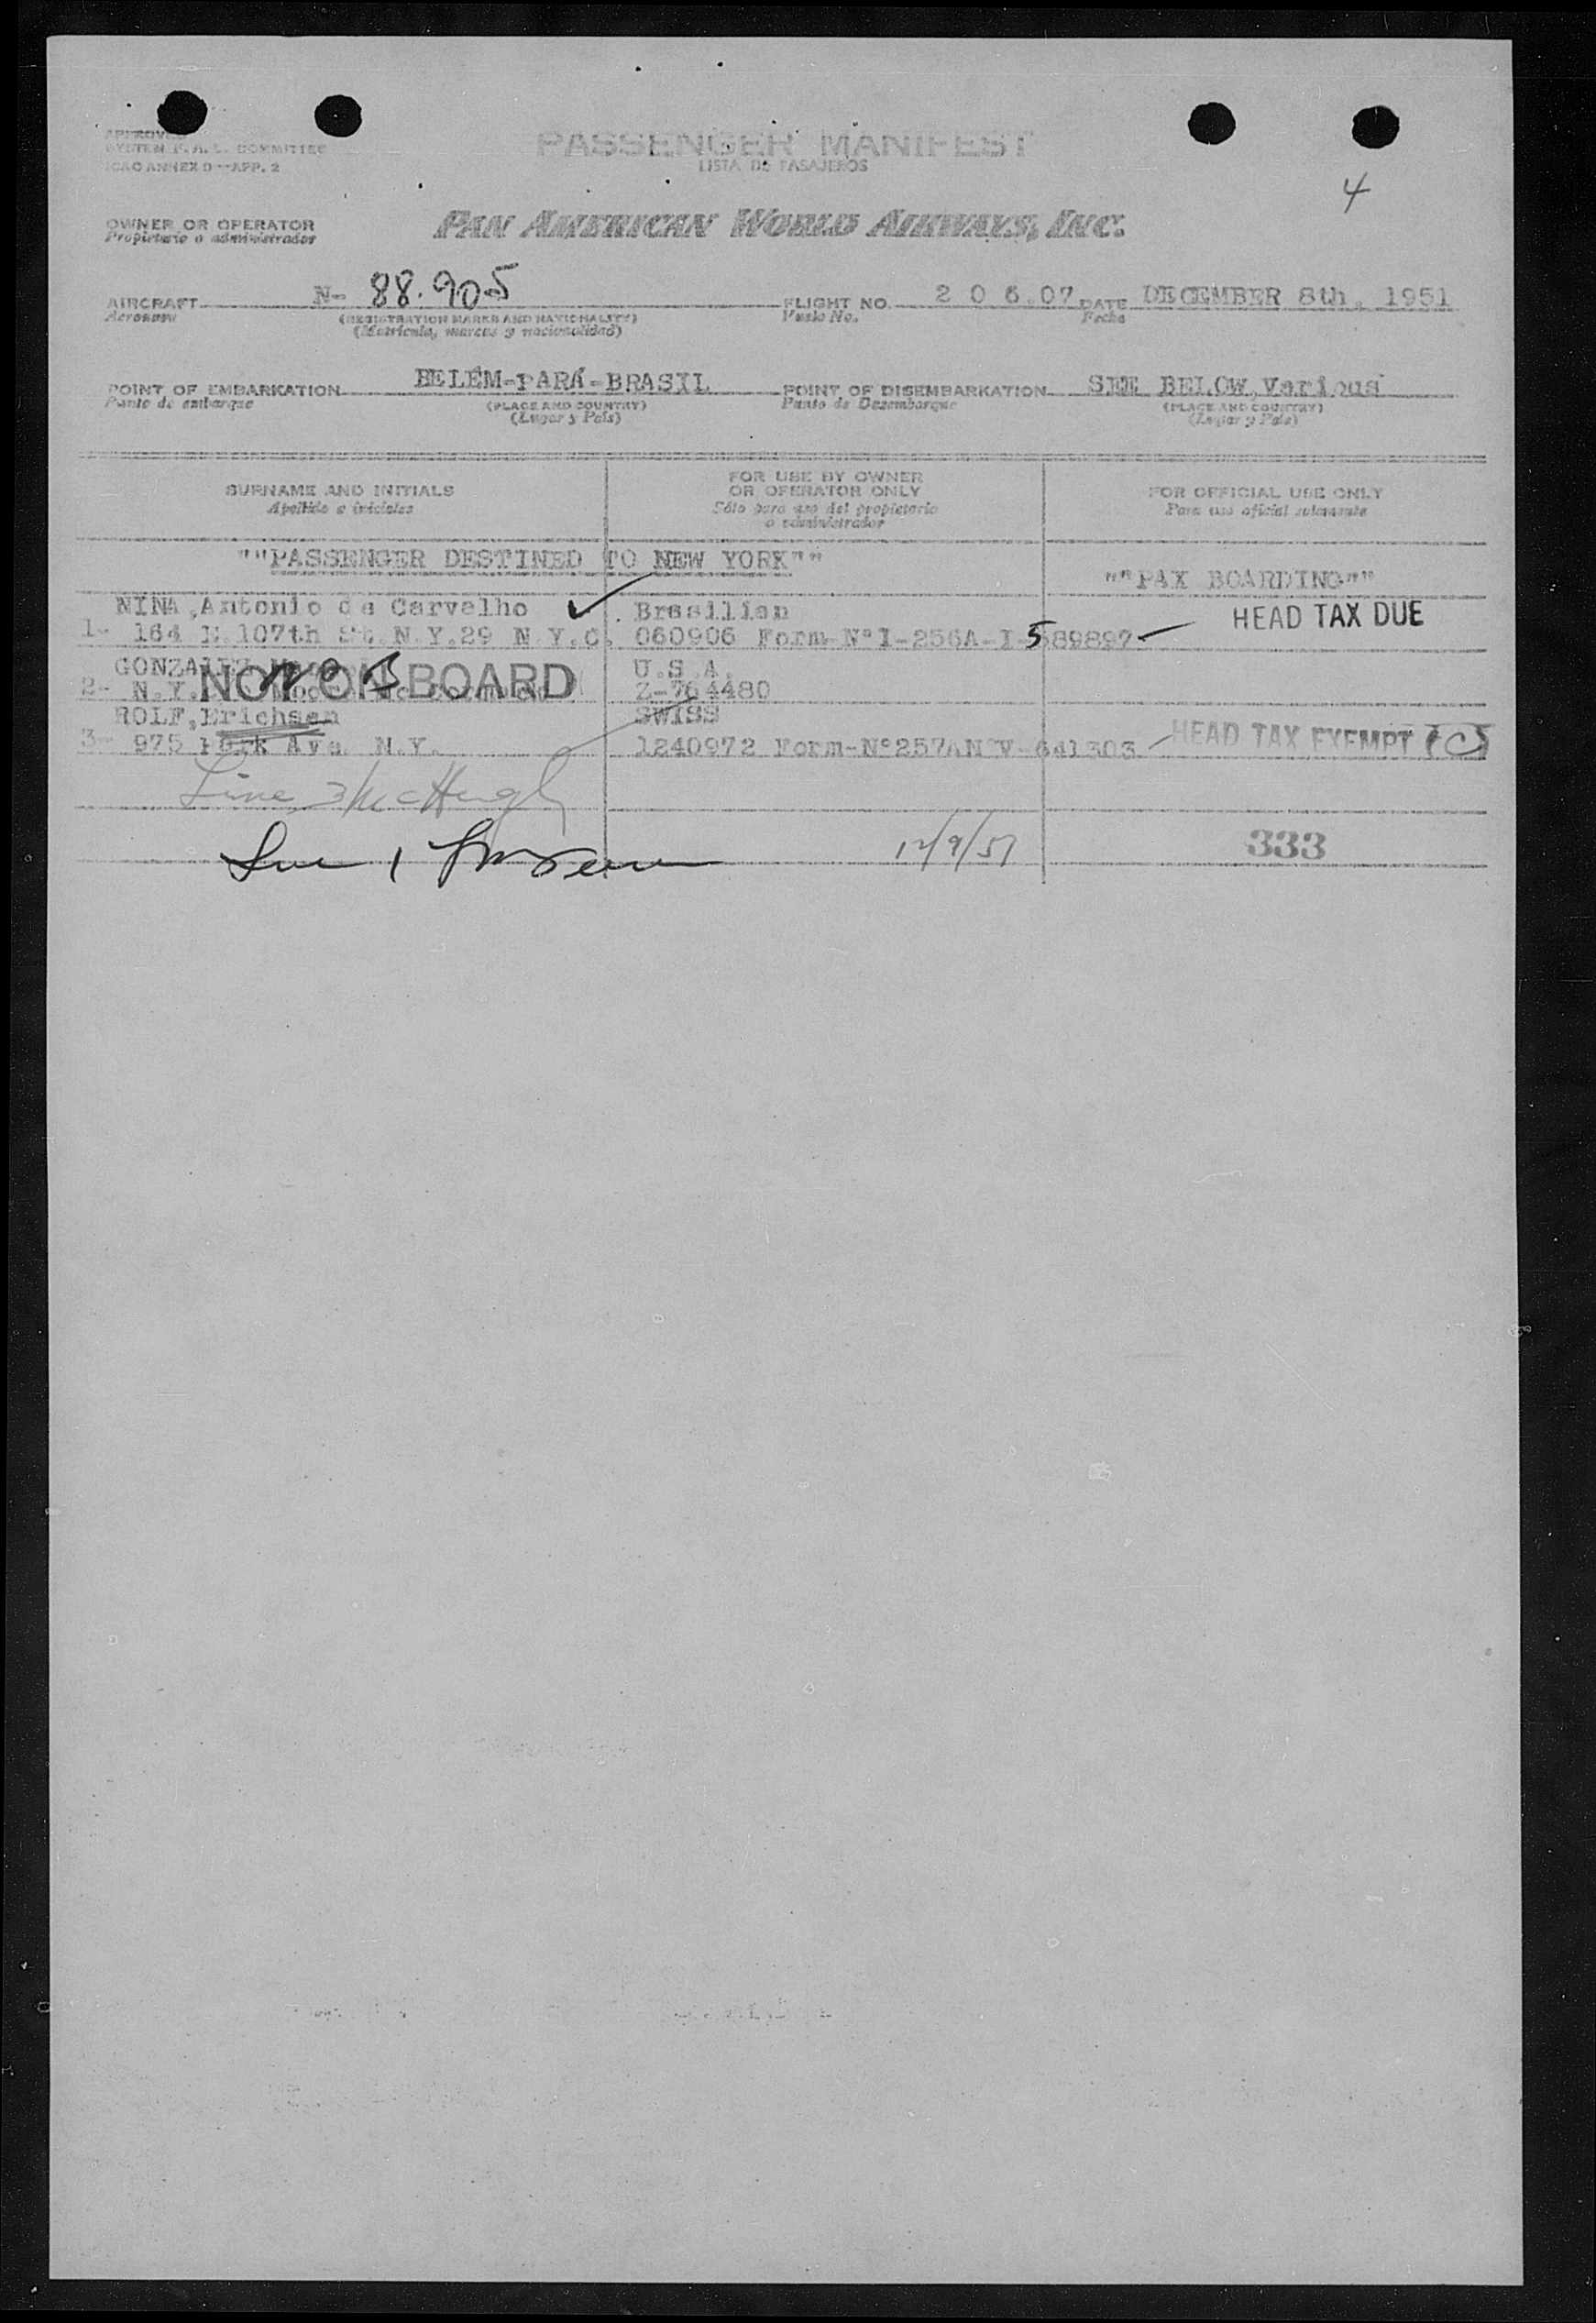 APPROVED
SYSTEM F. A. L. COMMITTEE
ICAO ANNEX 9—APP. 2
PASSENGER MANIFEST
LISTA DE PASAJEROS
4
OWNER OR OPERATOR
Propietario o administrador
PAN AMERICAN WORLD AIRWAYS, INC.
AIRCRAFT N- 88.905 FLIGHT NO. 2 0 6.07 DATE DECEMBER 8th, 1951
Aeronave (REGISTRATION MARKS AND NATIONALITY) Vuelo No. Fecha
(Matrícula, marcas y nacionalidad)
POINT OF EMBARKATION BELÉM-PARÁ-BRASIL POINT OF DISEMBARKATION SEE BELOW, Various
Punto de embarque (PLACE AND COUNTRY) Punto de Desembarque (PLACE AND COUNTRY)
(Lugar y País) (Lugar y País)
SURNAME AND INITIALS
Apellido e iniciales
FOR USE BY OWNER
OR OPERATOR ONLY
Sólo para uso del propietario
o administrador
FOR OFFICIAL USE ONLY
Para uso oficial solamente
""PASSENGER DESTINED TO NEW YORK""
""PAX BOARDING""
NINA, Antonio de Carvalho ✓ Brasilian HEAD TAX DUE
1- 164 E.107th St. N.Y.29 N.Y.C. 060906 Form-NºI-256A-I-589897
GONZALEZ U.S.A.
NOT ON BOARD
2- N.Y. Z-764480
ROLF, Erichsen SWISS
3- 975 Park Ave. N.Y. 1240972 Form-Nº257ANºV-641303 HEAD TAX EXEMPT
Line 3 McHugh
Line 1 12/9/51 333